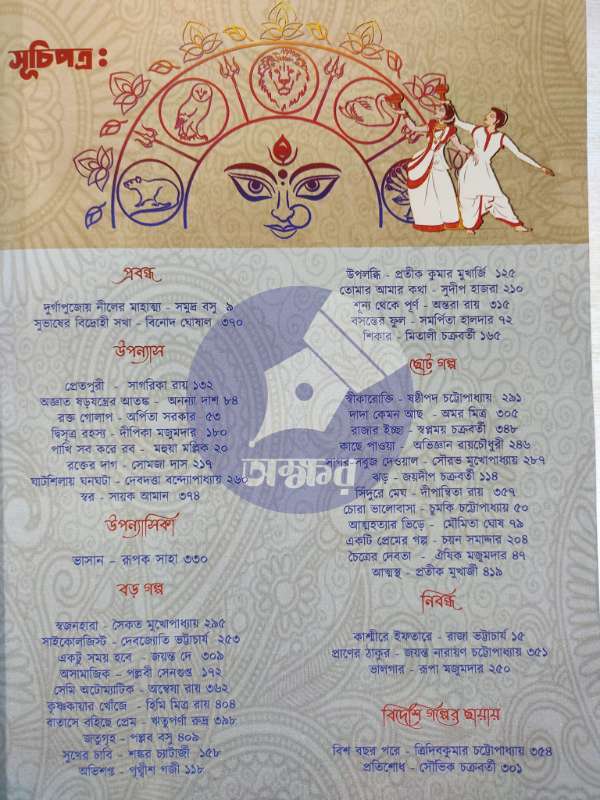 সূচিপত্র :
প্রবন্ধ
দুর্গাপুজোয় নীলের মাহাত্ম্য - সমুদ্র বসু ৯
সুভাষের বিদ্রোহী সখা - বিনোদ ঘোষাল ৩৭০
উপন্যাস
প্রেতপুরী - সাগরিকা রায় ১৩২
অজ্ঞাত ষড়যন্ত্রের আতঙ্ক - অনন্যা দাশ ৮৪
রক্ত গোলাপ - অর্পিতা সরকার ৫৩
দ্বিসূত্র রহস্য - দীপিকা মজুমদার ১৮০
পাখি সব করে রব - মহুয়া মল্লিক ২০
রক্তের দাগ - সোমজা দাস ২১৭
ঘাটশিলায় ঘনঘটা - দেবদত্তা বন্দ্যোপাধ্যায় ২৬০
স্বর - সায়ক আমান ৩৭৪
উপন্যাসিকা
ভাসান - রূপক সাহা ৩৩০
বড় গল্প
স্বজনহারা - সৈকত মুখোপাধ্যায় ২৯৫
সাইকোলজিস্ট - দেবজ্যোতি ভট্টাচার্য ২৫৩
একটু সময় হবে - জয়ন্ত দে ৩০৯
অসামাজিক - পল্লবী সেনগুপ্ত ১৭২
সেমি অটোম্যাটিক - অন্বেষা রায় ৩৬২
কৃষ্ণকায়ার খোঁজে - হিমি মিত্র রায় ৪০৪
বাতাসে বহিছে প্রেম - ঋতুপর্ণা রুদ্র ৩৯৮
জতুগৃহ - পল্লব বসু ৪০৯
সুখের চাবি - শঙ্কর চ্যাটার্জী ১৫৮
অভিশপ্ত - পৃথ্বীশ গজী ১১৮
উপলব্ধি - প্রতীক কুমার মুখার্জি ১২৫
তোমার আমার কথা - সুদীপ হাজরা ২১০
শূন্য থেকে পূর্ণ - অন্তরা রায় ৩১৫
বসন্তের ফুল - সমর্পিতা হালদার ৭২
শিকার - মিতালী চক্রবর্তী ১৬৫
ছোট গল্প
স্বীকারোক্তি - ষষ্ঠীপদ চট্টোপাধ্যায় ২৯১
দাদা কেমন আছ - অমর মিত্র ৩০৫
রাজার ইচ্ছা - স্বপ্নময় চক্রবর্তী ৩৪৮
কাছে পাওয়া - অভিজ্ঞান রায়চৌধুরী ২৪৬
সবুজ দেওয়াল - সৌরভ মুখোপাধ্যায় ২৮৭
অক্ষর
ঝড় - জয়দীপ চক্রবর্তী ১১৪
সিঁদুরে মেঘ - দীপান্বিতা রায় ৩৫৭
চোরা ভালোবাসা - চুমকি চট্টোপাধ্যায় ৫০
আত্মহত্যার ভিড়ে - মৌমিতা ঘোষ ৭৯
একটি প্রেমের গল্প - চয়ন সমাদ্দার ২০৪
চৈত্রের দেবতা - ঐষিক মজুমদার ৪৭
আত্মস্থ - প্রতীক মুখার্জী ৪১৯
নিবন্ধ
কাশ্মীরে ইফতারে - রাজা ভট্টাচার্য ১৫
প্রাণের ঠাকুর - জয়ন্ত নারায়ণ চট্টোপাধ্যায় ৩৫১
ভালগার - রূপা মজুমদার ২৫০
বিদেশি গল্পের ছায়ায়
বিশ বছর পরে - ত্রিদিবকুমার চট্টোপাধ্যায় ৩৫৪
প্রতিশোধ - সৌভিক চক্রবর্তী ৩০১